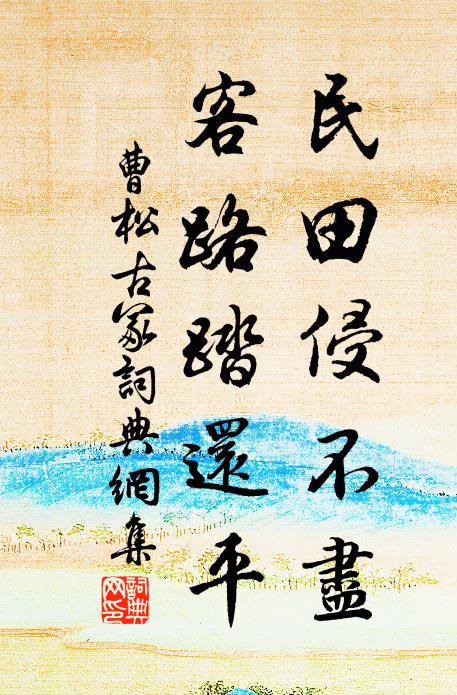 民田侵不盡
客路踏還平
曹松古冢詞典網集